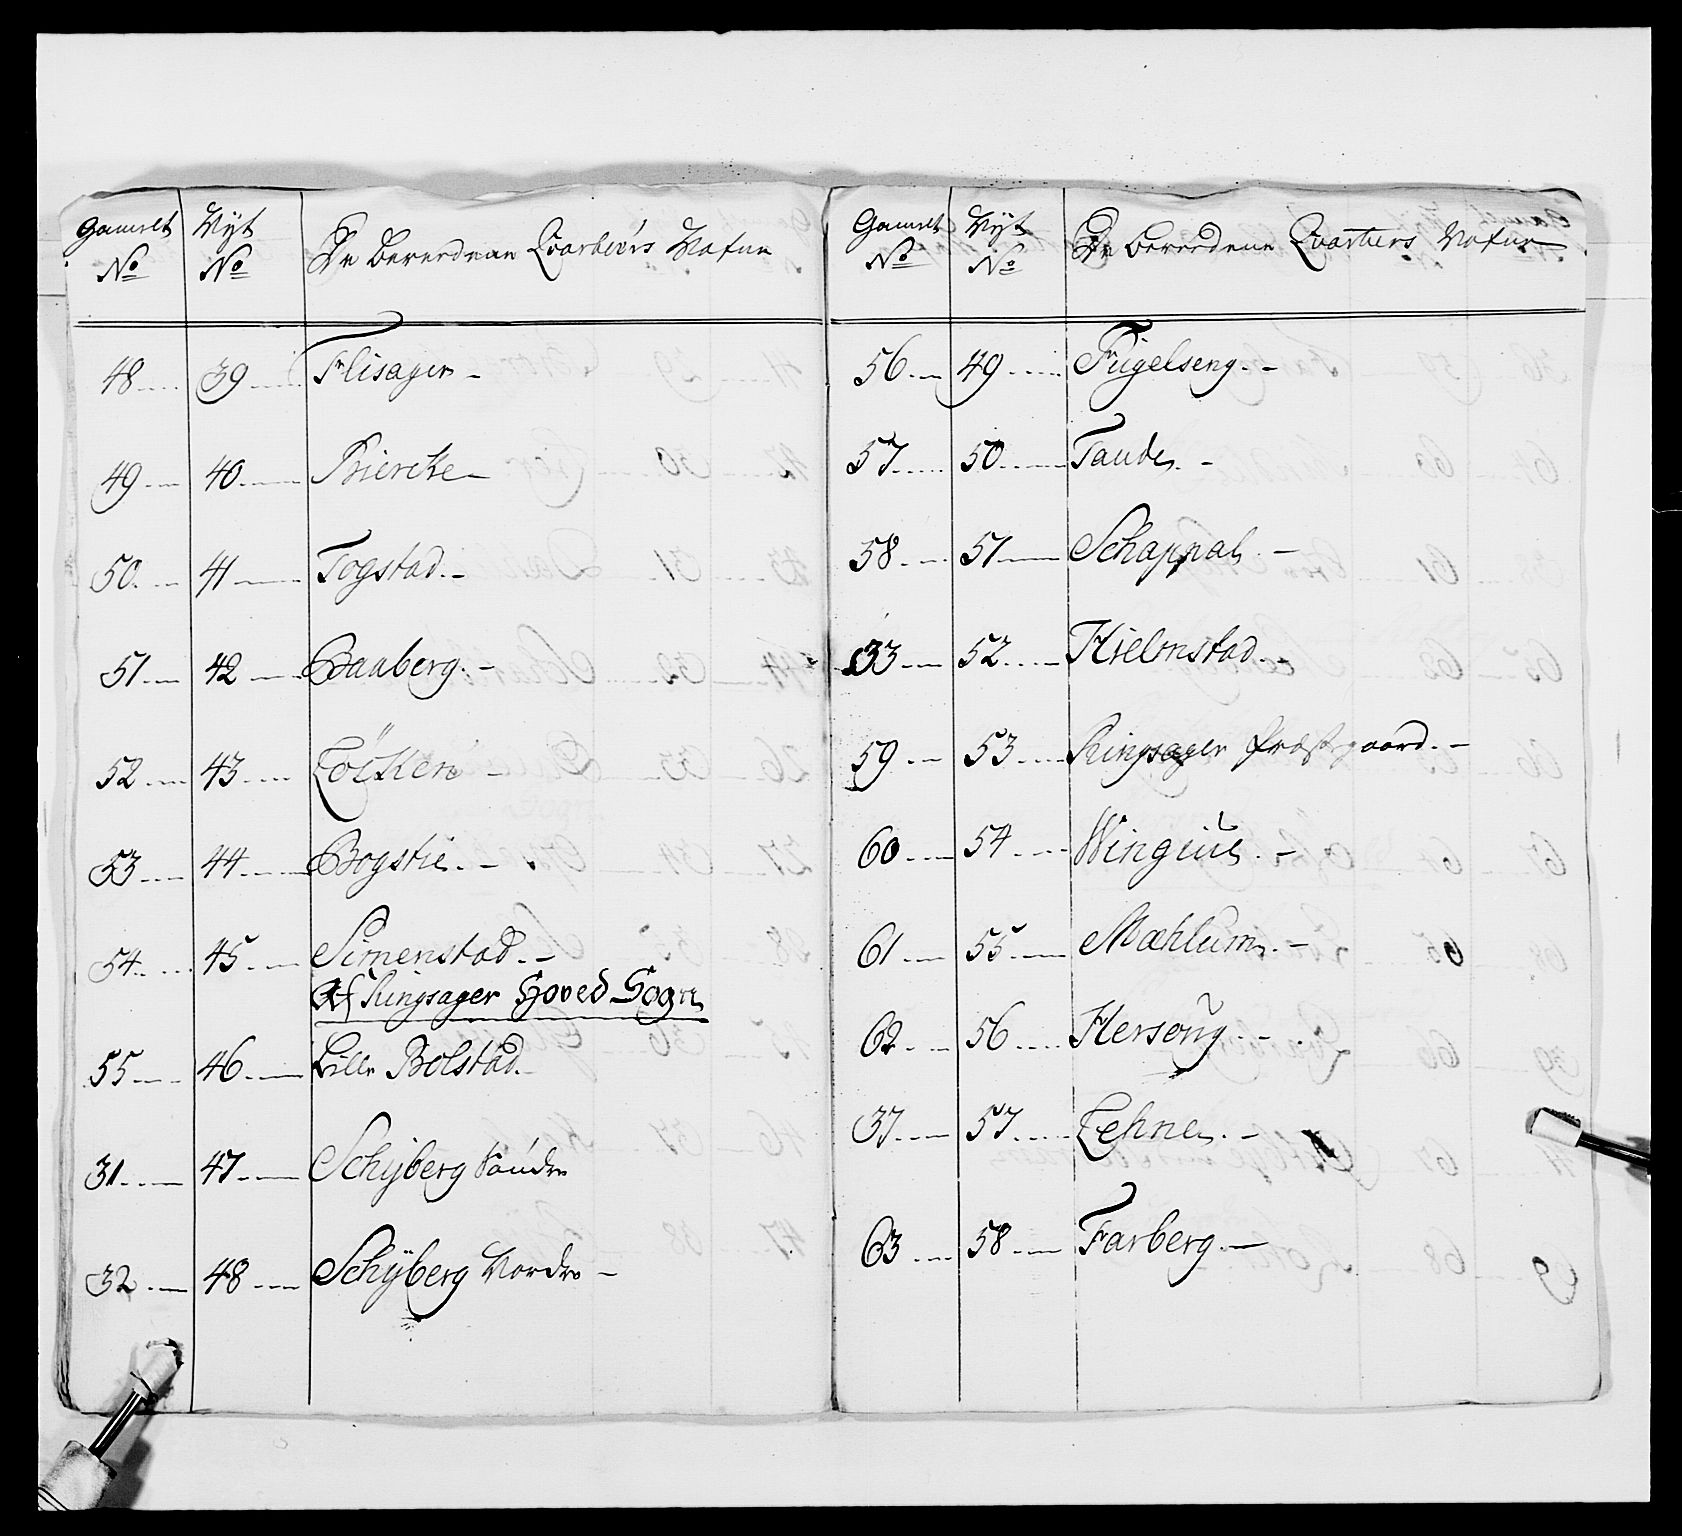 Gamelt Nyt De berørdene Qvarteers Nafne
No No
48 39 Flisager
49 40 Biercke
50 41 Togstad
51 42 Baaberg
52 43 Löcken
53 44 Bogstie
54 45 Simenstad
Af Ringsager Hoved Sogn
55 46 Lille Bolstad
31 47 Schÿberg Söndre
32 48 Schÿberg Nordre
Gamelt Nyt De berørdene Qvarteers Nafne
No No
56 49 Fugelseng
57 50 Taude
58 51 Schappal
33 52 Hielmstad
59 53 Ringsager Præstegaard
60 54 Wingiul
61 55 Mæhlum
62 56 Hersoug
37 57 Lehne
63 58 Farberg